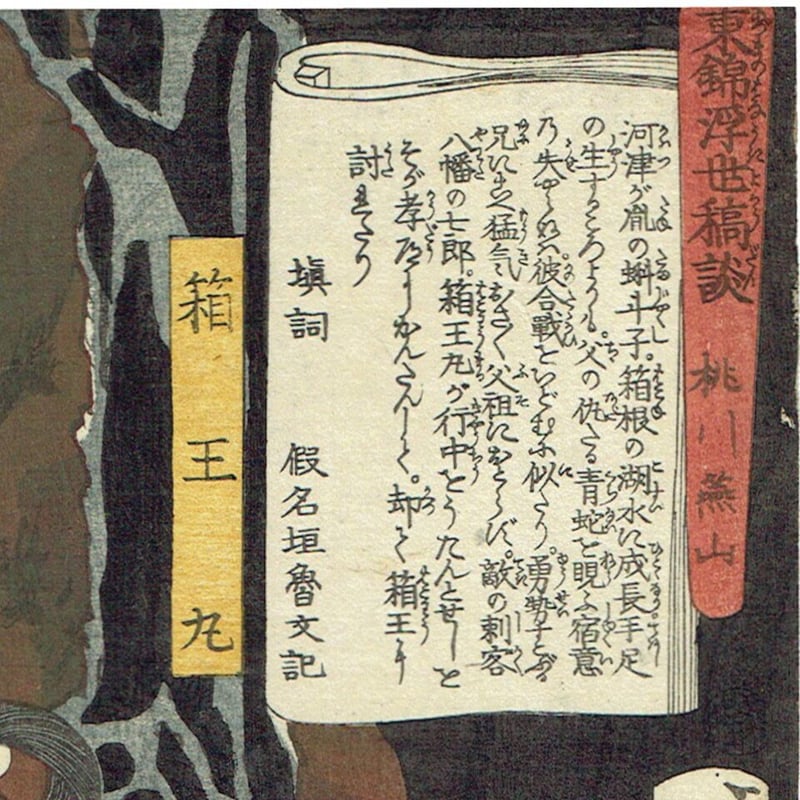 東錦浮世稿談 桃川燕山
河津が胤の蝌斗子。箱根の湖水に成長手足
の生ずるころより。父の仇たる青蛇を睨ふ宿意
乃。彼合戰といどむに似たり。勇勢すこぶる
兄に猛気父祖におとらず。敵の刺客
八幡の七郎。箱王丸が行中をうたんとせしと
そが孝かんたんし。却て箱王に
討れたり
塡詞 假名垣魯文記
箱王丸